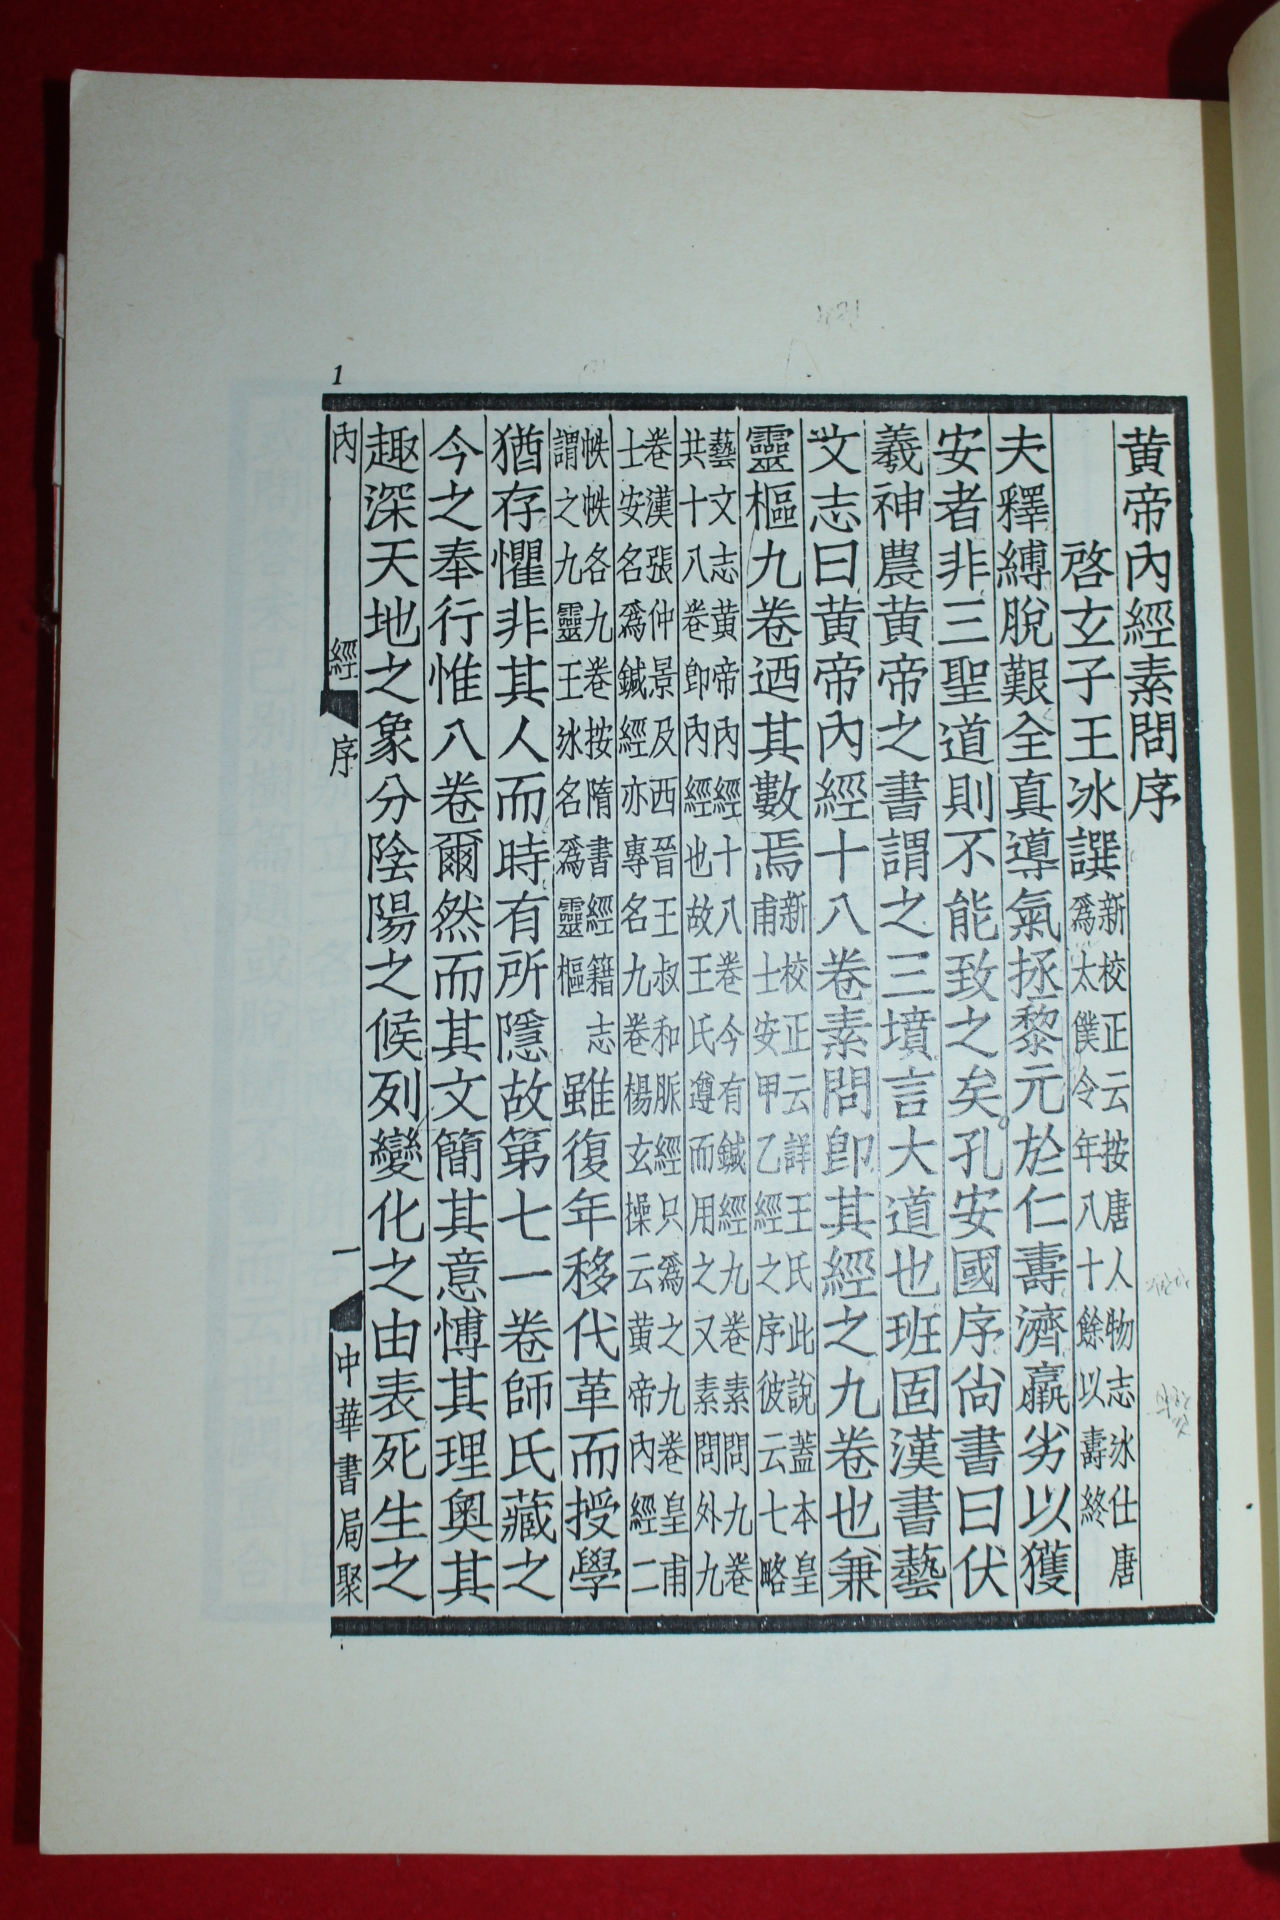 1
黃帝內經素問序
啓玄子王冰譔
新校正云按唐人物志冰仕唐
爲太僕令年八十餘以壽終
夫釋縛脫艱全真導氣拯黎元於仁壽濟羸劣以獲
安者非三聖道則不能致之矣孔安國序尙書曰伏
羲神農黃帝之書謂之三墳言大道也班固漢書藝
文志曰黃帝內經十八卷素問卽其經之九卷也兼
靈樞九卷迺其數焉
新校正云詳王氏此說蓋本皇
甫士安甲乙經之序彼云七略
藝文志黃帝內經十八卷今有鍼經九卷素問九卷
共十八卷卽內經也故王氏遵而用之又素問外九
卷漢張仲景及西晉王叔和脈經只爲之九卷皇甫
士安名爲鍼經亦專名九卷楊玄操云黃帝內經二
帙帙各九卷按隋書經籍志
謂之九靈王冰名爲靈樞
雖復年移代革而授學
猶存懼非其人而時有所隱故第七一卷師氏藏之
今之奉行惟八卷爾然而其文簡其意博其理奧其
趣深天地之象分陰陽之候列變化之由表死生之
內經 序 一 中華書局聚